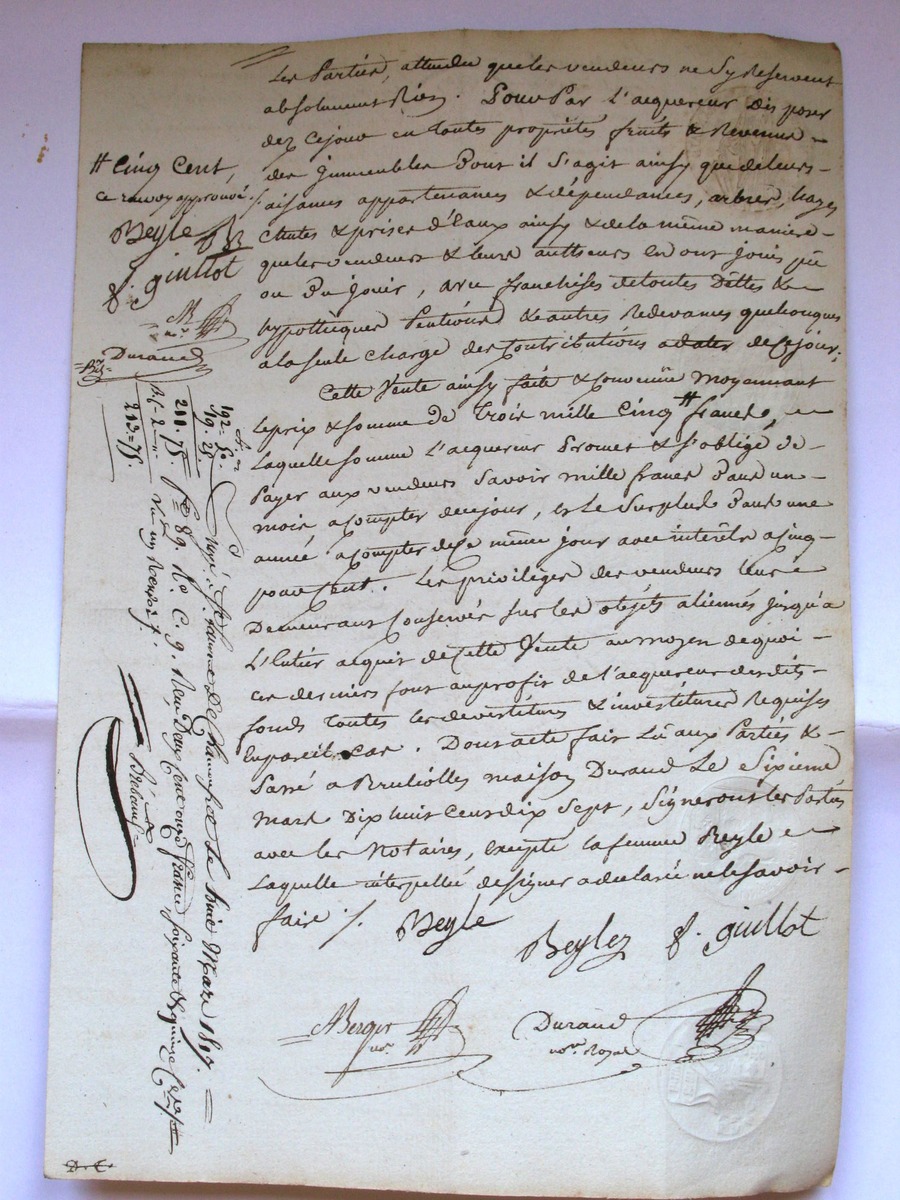 Les Parties, attendu que les vendeurs ne Sy Reservent
absolument Rien. Pour Par l'acquereur disposer
dez cejour en toutes proprietés fruits & Revenus
des Immeubles Dont il S'agit ainsy que de leurs
aisances appartenances & dépendances, arbres, hayes
chutes & prises d'Eaux ainsy & de la même maniere
que les vendeurs & leurs autheurs En ont joui pû
ou Du jouir, avec franchises de toutes Dettes &
hypotheques Pentions & autres Redevances quelconques
a la seule Charge des Contributions a dater de cejour;
Cette Vente ainsy faite & Convenüe moyennant
le prix & somme de Trois mille Cinq # francs,
Laquelle somme l'acquereur Promet & s'oblige de
Payer aux vendeurs Savoir mille francs Dans un
mois a compter decejour, et le Surplus Dans une
année a compter de Ce même jour avec intérêts a Cinq
pour Cent. Les privilèges des vendeurs leurs
Demeurant Conservés sur les objéts aliennés jusqu'a
L'Entier acquit de Cette Vente au moyen de quoi
ces derniers font au profit de l'acquereur desdits
fonds Toutes les devestitures & investitures Requises
En pareil Cas. Dont acte fait Lû aux Parties &
Passé a Brulliolles maison Durand Le Sixieme
mars Dix huit Cent dix Sept, Signeront les Parties
avec les Notaires, excepte la femme Beyle
Laquelle interpellée de signer a declaré ne le savoir
faire /. Beyle
Beyle f. giullot
Berger
nore.
Durand
nore. Royal
# Cinq Cent,
ce renvoy approuvé /.
Beyle B
f. giullot
B
nre.
Durand
192=50
19.25
211.75.
2
213=75.
St. Laurent De Chamousset Le huit Mars 1817.
fo. 89. Ro. C. 9. Reçu Deux Cent onze francs Soixante & quinze Ces.